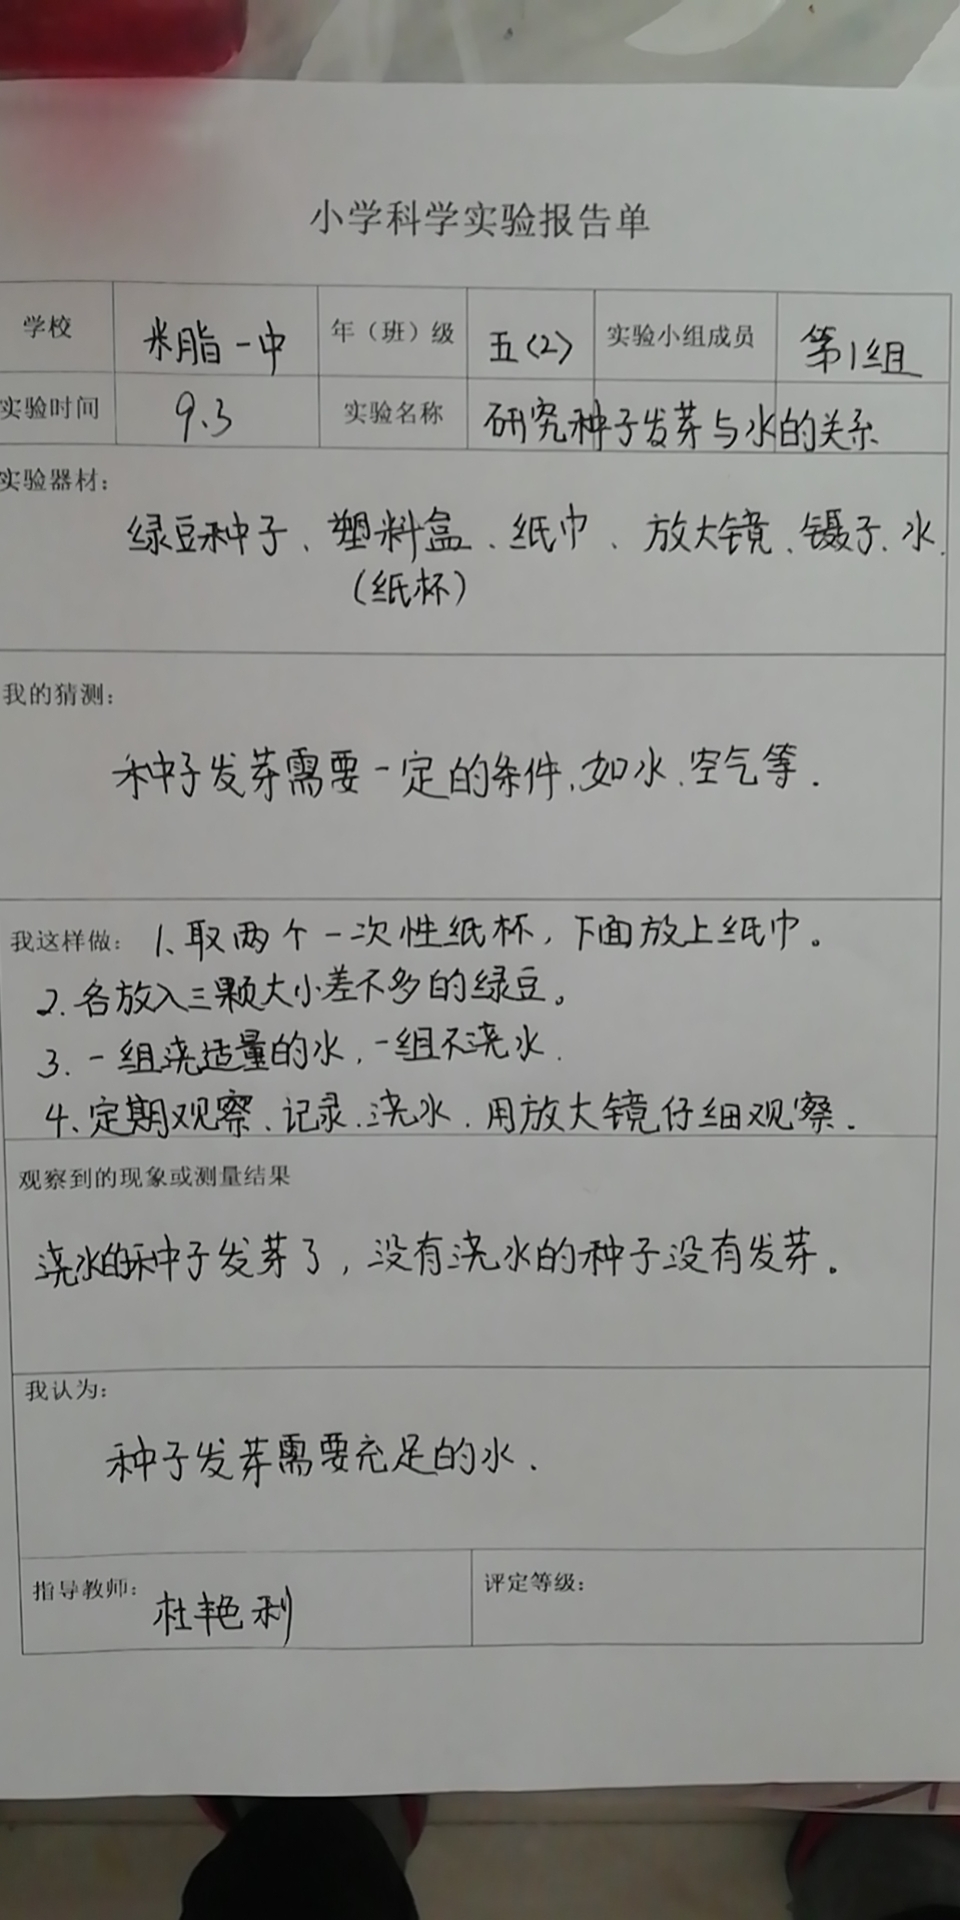 小学科学实验报告单
学校 米脂一中 年（班）级 五〈2〉 实验小组成员 第1组
实验时间 9.3 实验名称 研究种子发芽与水的关系
实验器材：
绿豆种子、塑料盒、纸巾、放大镜、镊子、水.
（纸杯）
我的猜测：
种子发芽需要一定的条件,如水、空气等.
我这样做： 1、取两个一次性纸杯，下面放上纸巾。
2.各放入三颗大小差不多的绿豆。
3.一组浇适量的水,一组不浇水.
4、定期观察、记录、浇水.用放大镜仔细观察.
观察到的现象或测量结果
浇水的种子发芽了，没有浇水的种子没有发芽。
我认为：
种子发芽需要充足的水.
指导教师： 杜艳利 评定等级：